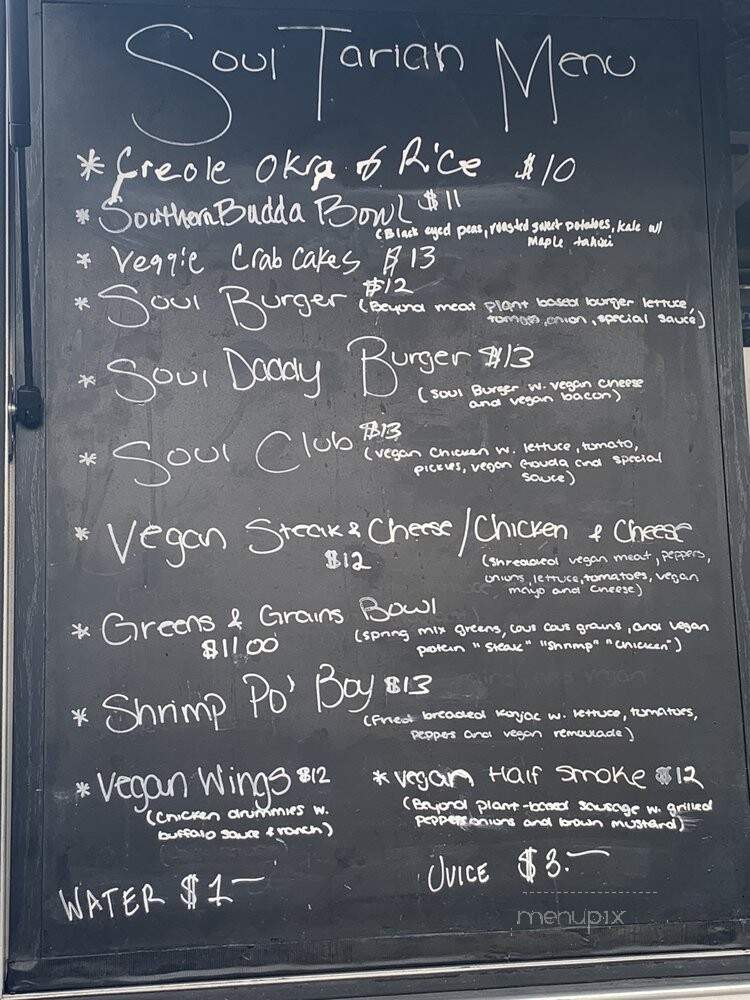 Soul Tarian Menu
* Creole Okra & Rice $10
* Southern Budda Bowl $11
(Black eyed peas, roasted sweet potatoes, kale w/
Maple tahini
* Veggie Crab Cakes $13
* Soul Burger $12
(Beyond meat plant based burger lettuce,
tomato, onion, special sauce)
* Soul Daddy Burger $13
(Soul Burger w. vegan cheese
and vegan bacon)
* Soul Club $13
(vegan chicken w. lettuce, tomato,
pickles, vegan gouda and special
sauce)
* Vegan Steak & Cheese/Chicken & Cheese
$12
(shredded vegan meat, peppers,
onions, lettuce, tomatoes, vegan
mayo and cheese)
* Greens & Grains Bowl
$11.00
(spring mix greens, cous cous grains, and vegan
protein "steak" "shrimp" "chicken")
* Shrimp Po' Boy $13
(Fried breaded Konjac w. lettuce, tomatoes,
peppers and vegan remoulade)
* Vegan Wings $12
(Chicken drummies w.
buffalo sauce & ranch)
* vegan Half Smoke $12
(Beyond plant-based sausage w. grilled
peppers onions and brown mustard)
WATER $1—
JUICE $3.—
menupix